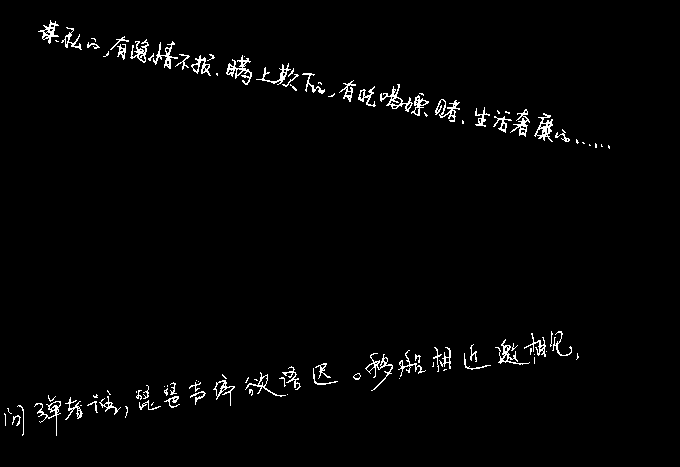 谋私的,有隐情不报、瞒上欺下的,有吃喝嫖赌、生活奢靡的......
问弹者谁,琵琶声停欲语迟。移船相近邀相见,